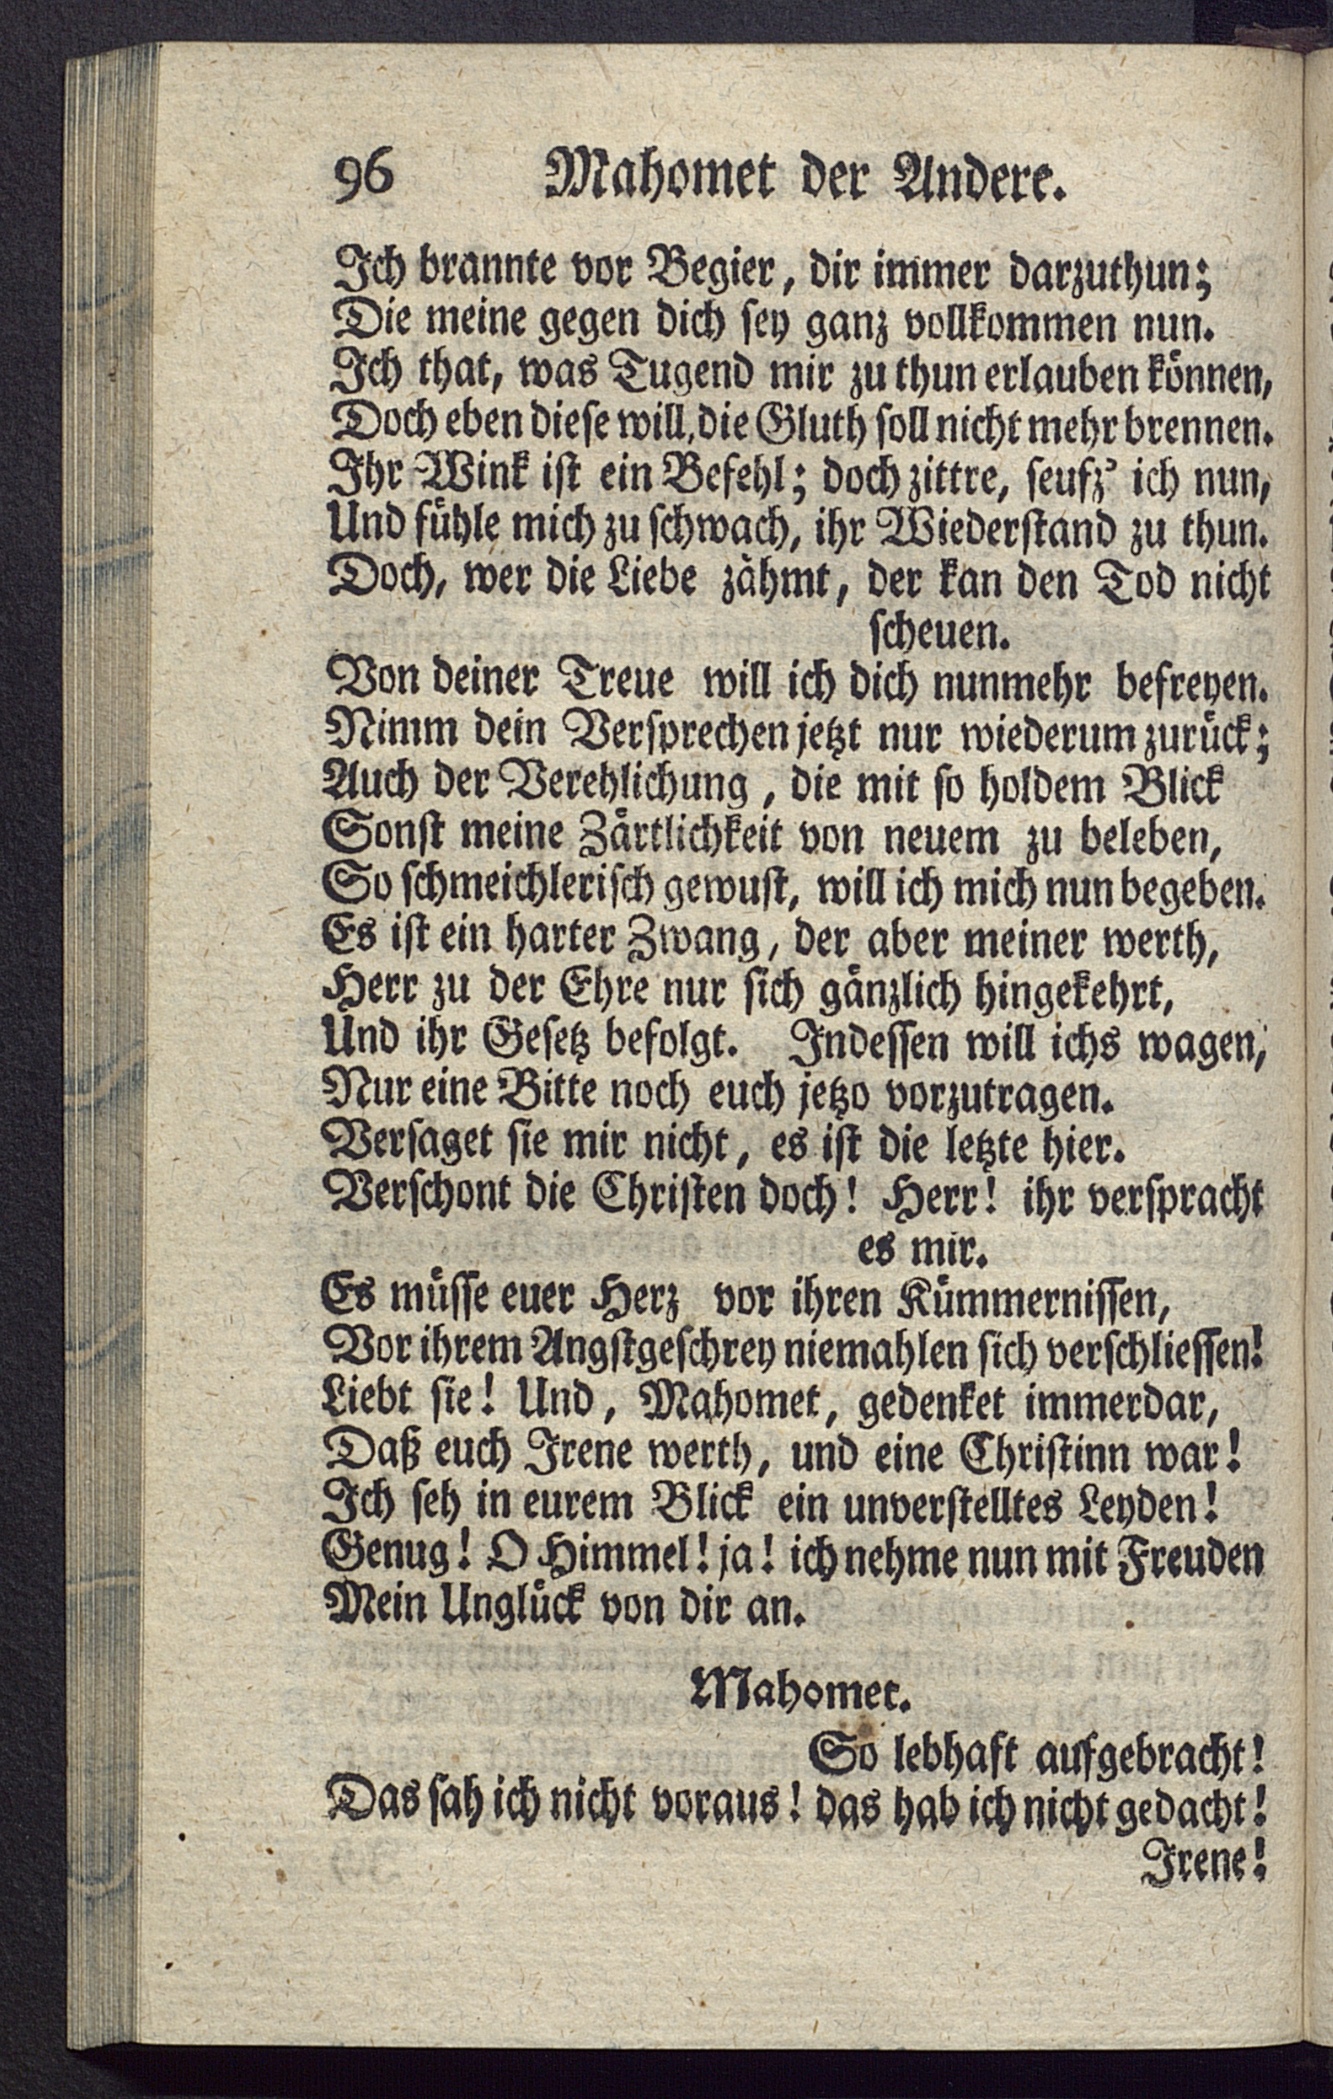 96 Mahomet der Andere.
Ich brannte vor Begier, dir immer darzuthun;
Die meine gegen dich sey ganz vollkommen nun.
Ich that, was Tugend mir zu thun erlauben können,
Doch eben diese will, die Gluth soll nicht mehr brennen.
Ihr Wink ist ein Befehl; doch zittre, seufz' ich nun,
Und fühle mich zu schwach, ihr Wiederstand zu thun.
Doch, wer die Liebe zähmt, der kan den Tod nicht
scheuen.
Von deiner Treue will ich dich nunmehr befreyen.
Nimm dein Versprechen jetzt nur wiederum zurück;
Auch der Verehlichung, die mit so holdem Blick
Sonst meine Zärtlichkeit von neuem zu beleben,
So schmeichlerisch gewust, will ich mich nun begeben.
Es ist ein harter Zwang, der aber meiner werth,
Herr zu der Ehre nur sich gänzlich hingekehrt,
Und ihr Gesetz befolgt. Indessen will ichs wagen,
Nur eine Bitte noch euch jetzo vorzutragen.
Versaget sie mir nicht, es ist die letzte hier.
Verschont die Christen doch! Herr! ihr verspracht
es mir.
Es müsse euer Herz vor ihren Kümmernissen,
Vor ihrem Angstgeschrey niemahlen sich verschliessen!
Liebt sie! Und, Mahomet, gedenket immerdar,
Daß euch Irene werth, und eine Christinn war!
Ich seh in eurem Blick ein unverstelltes Leyden!
Genug! O Himmel! ja! ich nehme nun mit Freuden
Mein Unglück von dir an.
Mahomet.
So lebhaft aufgebracht!
Das sah ich nicht voraus! das hab ich nicht gedacht!
Irene!